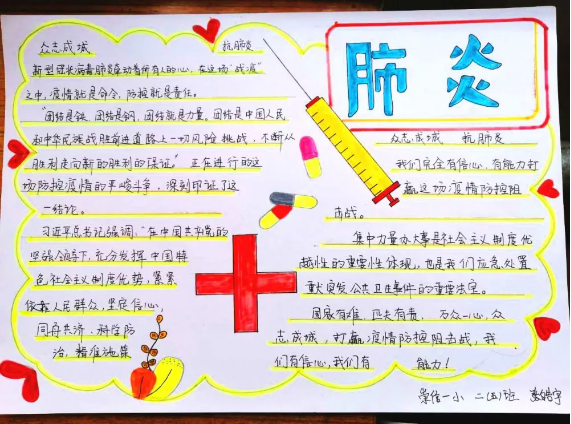 肺炎
众志成城 抗肺炎
新型冠状病毒肺炎牵动着所有人的心,在这场"战疫"
之中,疫情就是命令,防控就是责任。
"团结是铁,团结是钢,团结就是力量。团结是中国人民
和中华民族战胜前进道路上一切风险挑战,不断从
胜利走向新的胜利的保证"正在进行的这
场防控疫情的严峻斗争,深刻印证了这
一结论。
习近平总书记强调,"在中国共产党的
坚强领导下,充分发挥中国特
色社会主义制度优势,紧紧
依靠人民群众,坚定信心,
同舟共济,科学防
治,精准施策
众志成城 抗肺炎
我们完全有信心,有能力打
赢这场疫情防控阻
击战。
集中力量办大事是社会主义制度优
越性的重要性体现,也是我们应急处置
重大突发公共卫生事件的重要法宝。
国家有难,匹夫有责,万众一心,众
志成城,打赢疫情防控阻击战,我
们有信心,我们有 能力!
一小 二(五)班